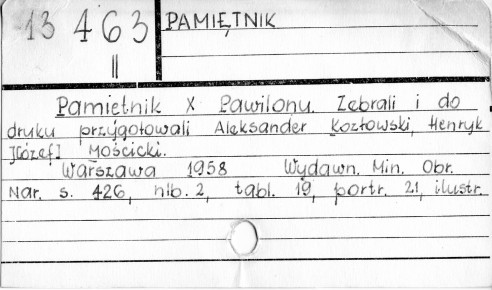 13 463
II
PAMIĘTNIK
Pamiętnik X Pawilonu. Zebrali i do
druku przygotowali Aleksander Kozłowski, Henryk
J[ózef] Mościcki.
Warszawa 1958 Wydawn. Min. Obr.
Nar. s. 426, nlb. 2, tabl. 19, portr. 21, ilustr.